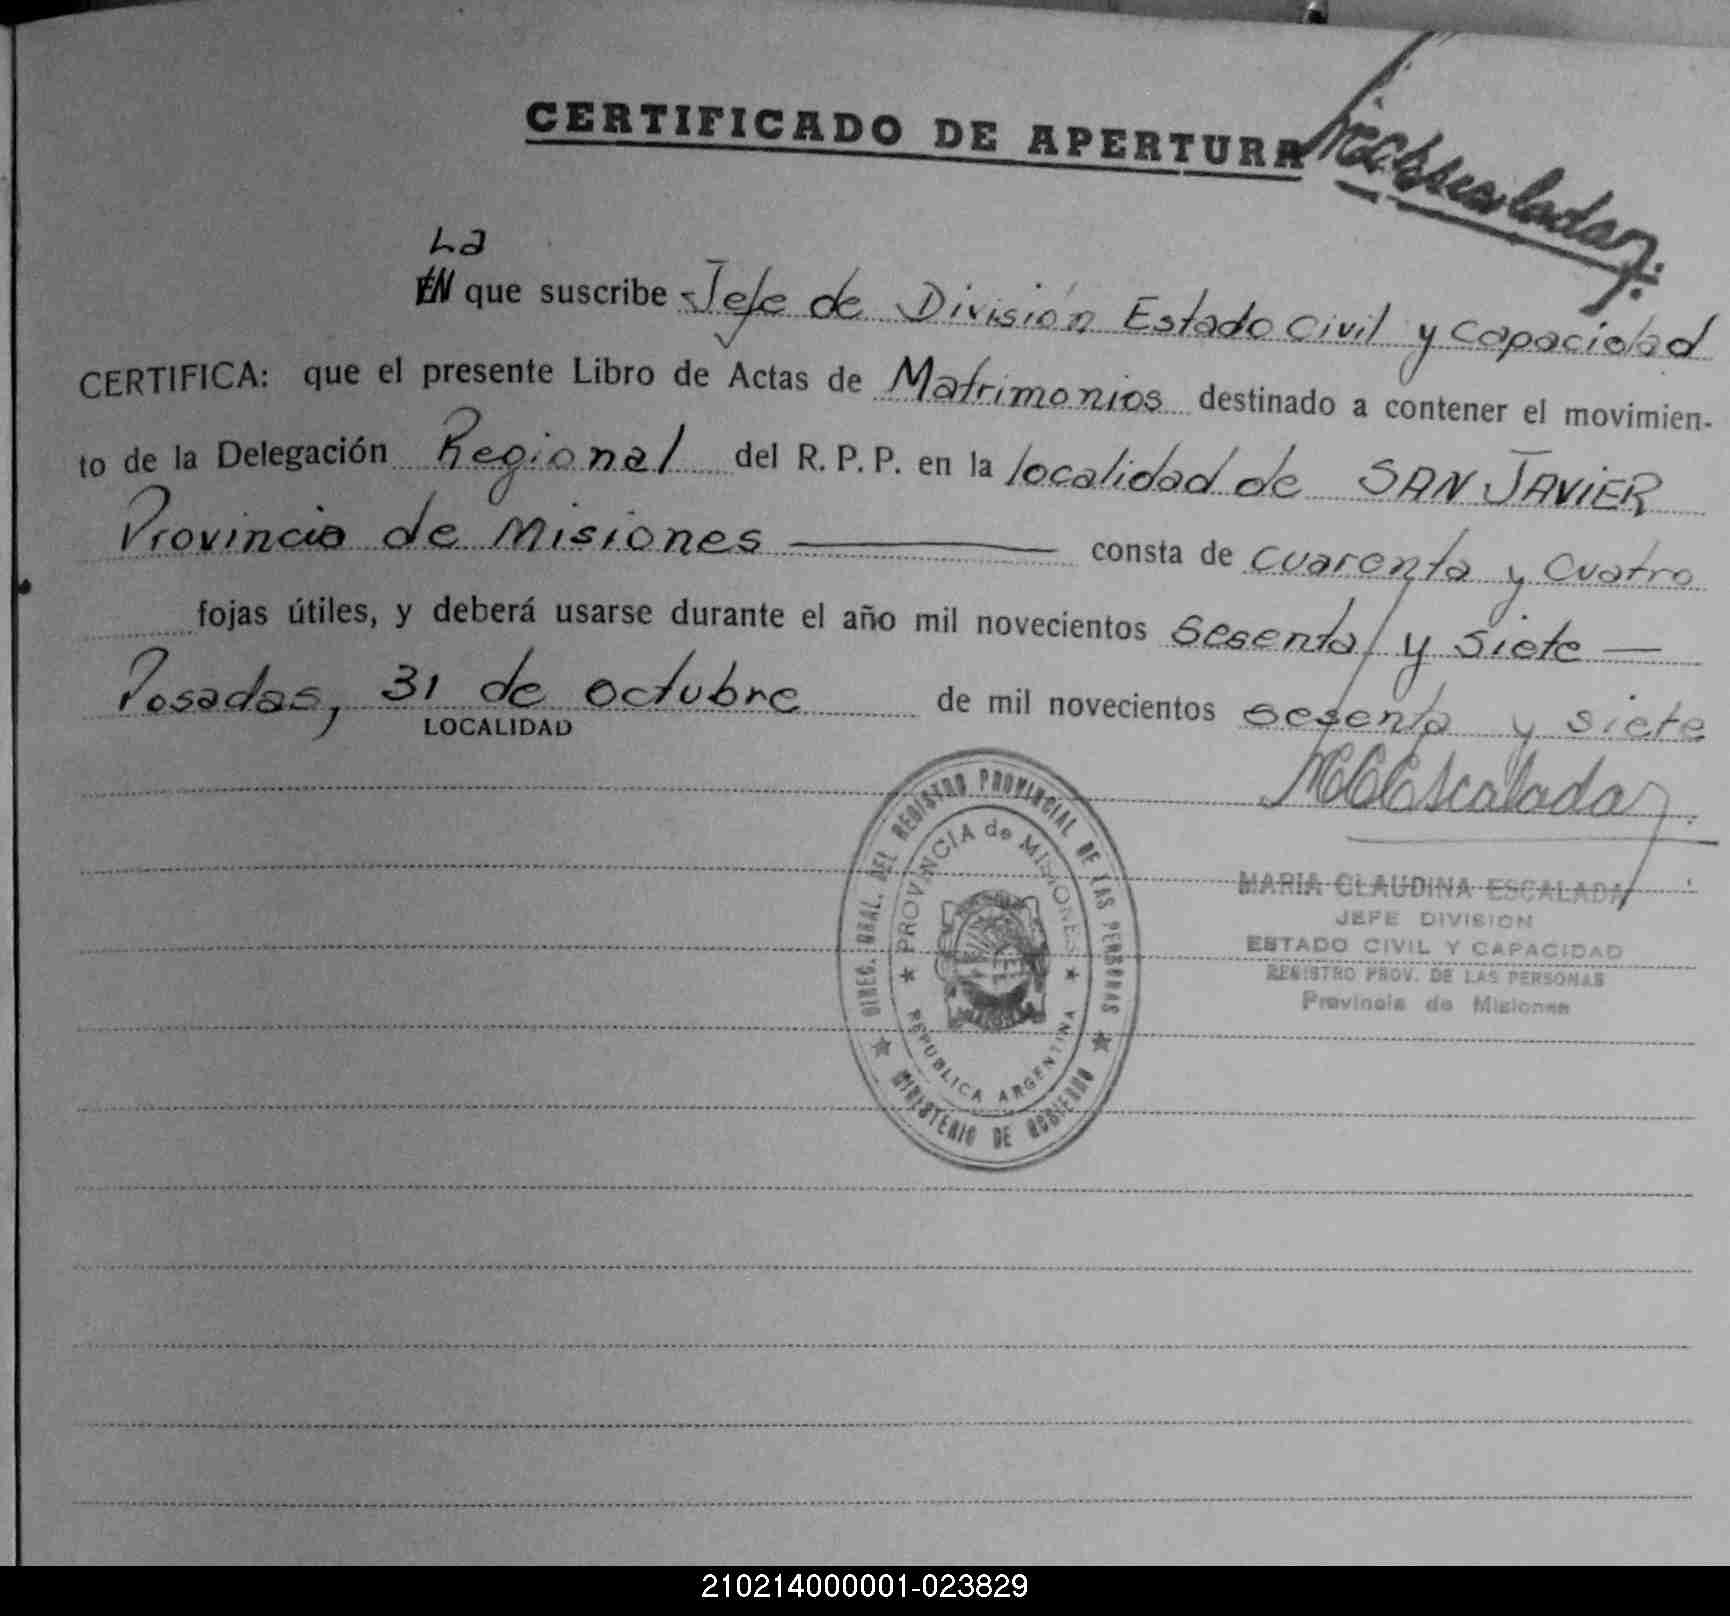 CERTIFICADO DE APERTURA
La
que suscribe Jefe de División Estado Civil y Capacidad
CERTIFICA: que el presente Libro de Actas de Matrimonios destinado a contener el movimien-
to de la Delegación Regional del R. P. P. en la localidad de SAN JAVIER
Provincia de Misiones consta de cuarenta y cuatro
fojas útiles, y deberá usarse durante el año mil novecientos sesenta y siete —
Posadas, 31 de octubre de mil novecientos sesenta y siete
LOCALIDAD
MCEscalada
DIREC. GRAL. DEL REGISTRO PROVINCIAL DE LAS PERSONAS
PROVINCIA de MISIONES
REPUBLICA ARGENTINA
MINISTERIO DE GOBIERNO
MARIA CLAUDINA ESCALADA
JEFE DIVISION
ESTADO CIVIL Y CAPACIDAD
REGISTRO PROV. DE LAS PERSONAS
Provincia de Misiones
210214000001-023829